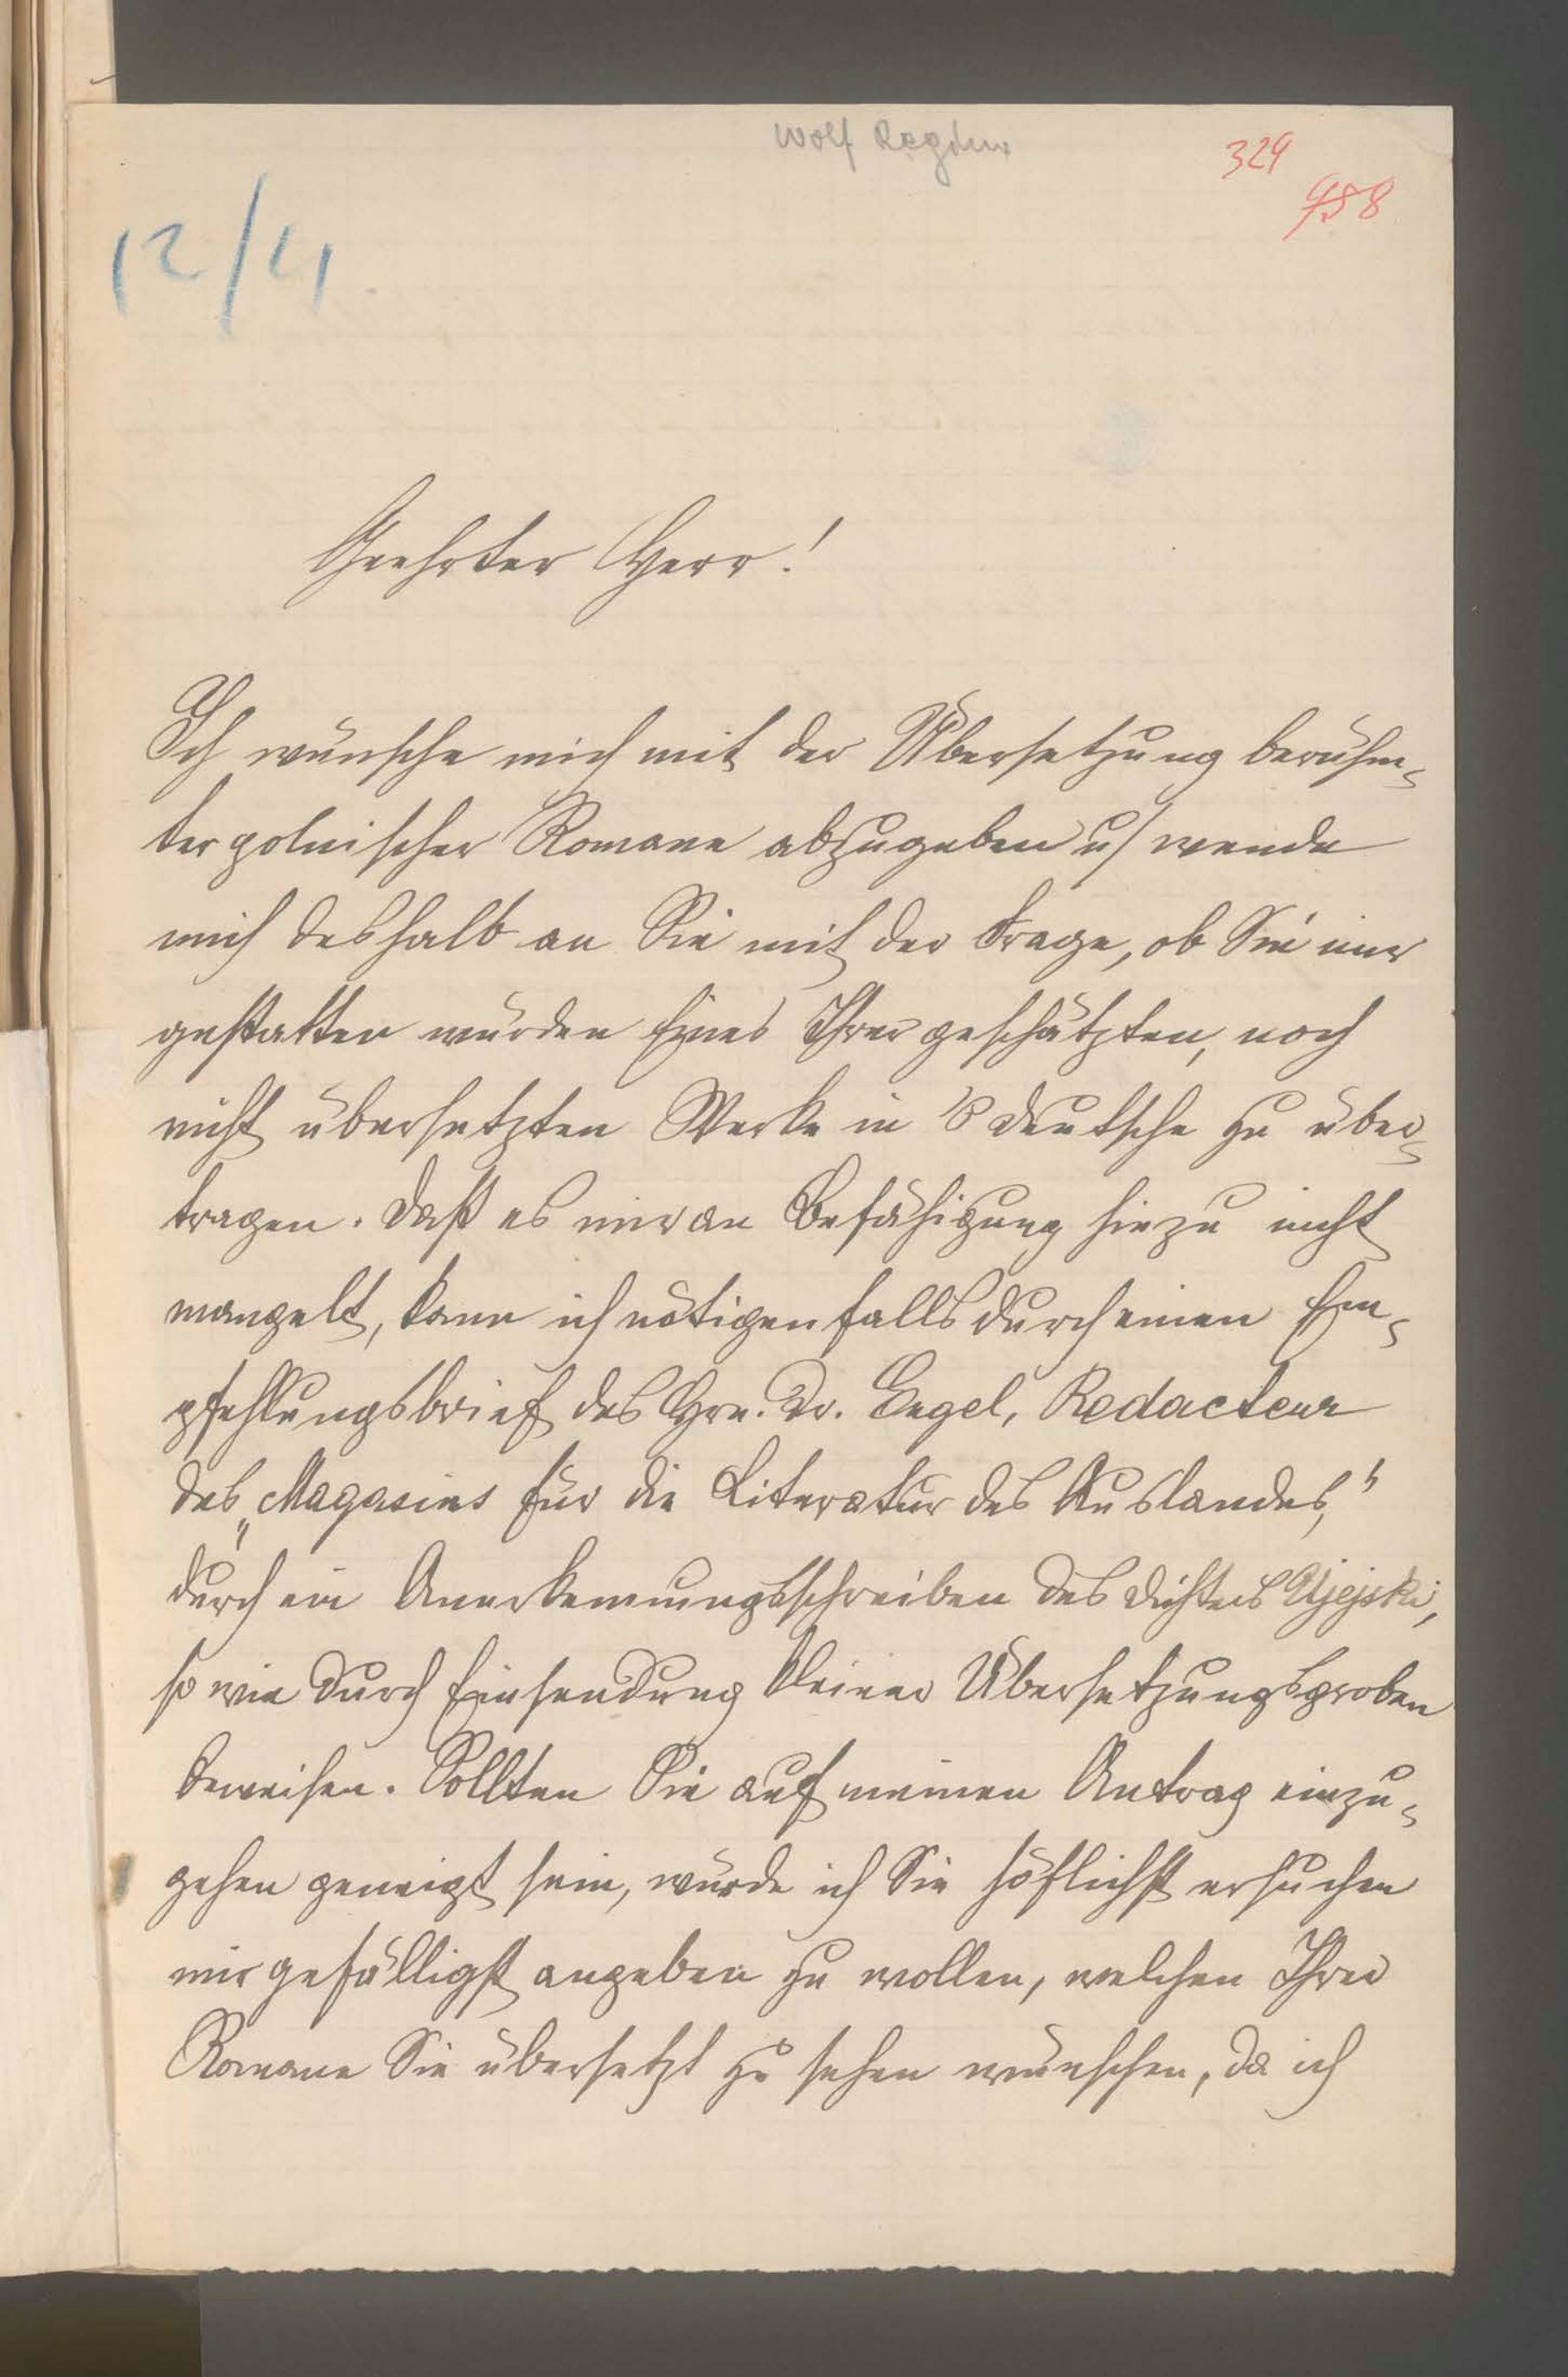 Wolf
324
958
12/4
Geehrter Herr!
Ich wünsche mich mit der Übersetzung berühm-
ter polnischer Romane abzugeben u/ wende
mich deshalb an Sie mit der Frage, ob Sie mir
gestatten würden Eines Ihrer geschätzten, noch
nicht übersetzten Werke in's Deutsche zu über-
tragen. Daß es mir an Befähigung hiezu nicht
mangelt, kann ich nötigenfalls durch einen Em-
pfehlungsbrief des Hrn. Dr. Engel, Redacteur
des „Magasins für die Literatur des Auslandes,"
durch ein Anerkennungsschreiben des Dichters Ujejski,
so wie durch Einsendung kleiner Übersetzungsproben
beweisen. Sollten Sie auf meinen Antrag einzu-
gehen geneigt sein, würde ich Sie höflichst ersuchen
mir gefälligst angeben zu wollen, welchen Ihrer
Romane Sie übersetzt zu sehen wünschen, da ich